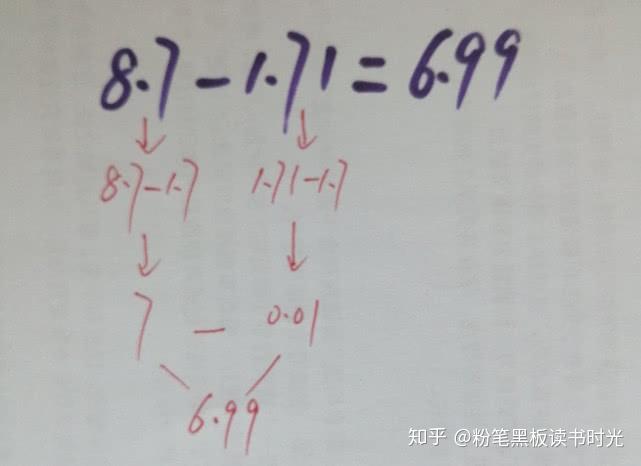 8.7-1.71=6.99
8.7-1.7 1.71-1.7
7 - 0.01
6.99
知乎 @粉笔黑板读书时光